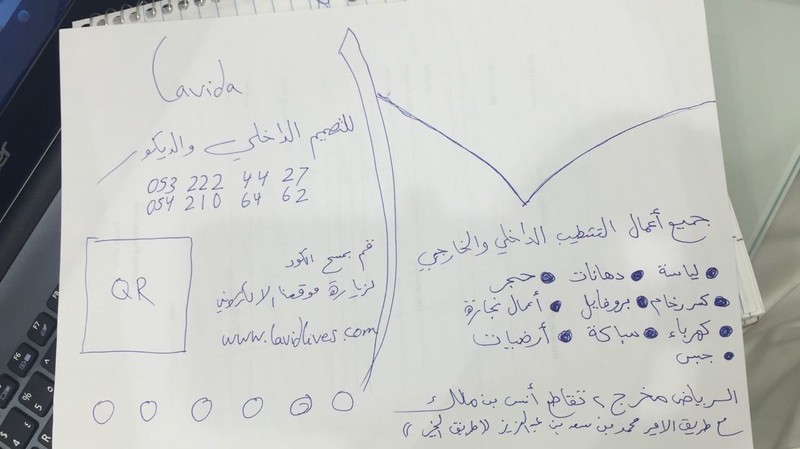 Lavida
للتصميم الداخلي والديكور
053 222 44 27
054 210 64 62
QR
قم بمسح الكود
لزيارة موقعنا الالكتروني
www.lavidlives.com
جميع أعمال التشطيب الداخلي والخارجي
لياسة • دهانات • حجر
كسر رخام • بروفايل • أعمال نجارة
كهرباء • سباكة • أرضيات
جبس
الرياض مخرج ٢ تقاطع أنس بن مالك
مع طريق الامير محمد بن سعد بن عبدالعزيز ((طريق الخير))